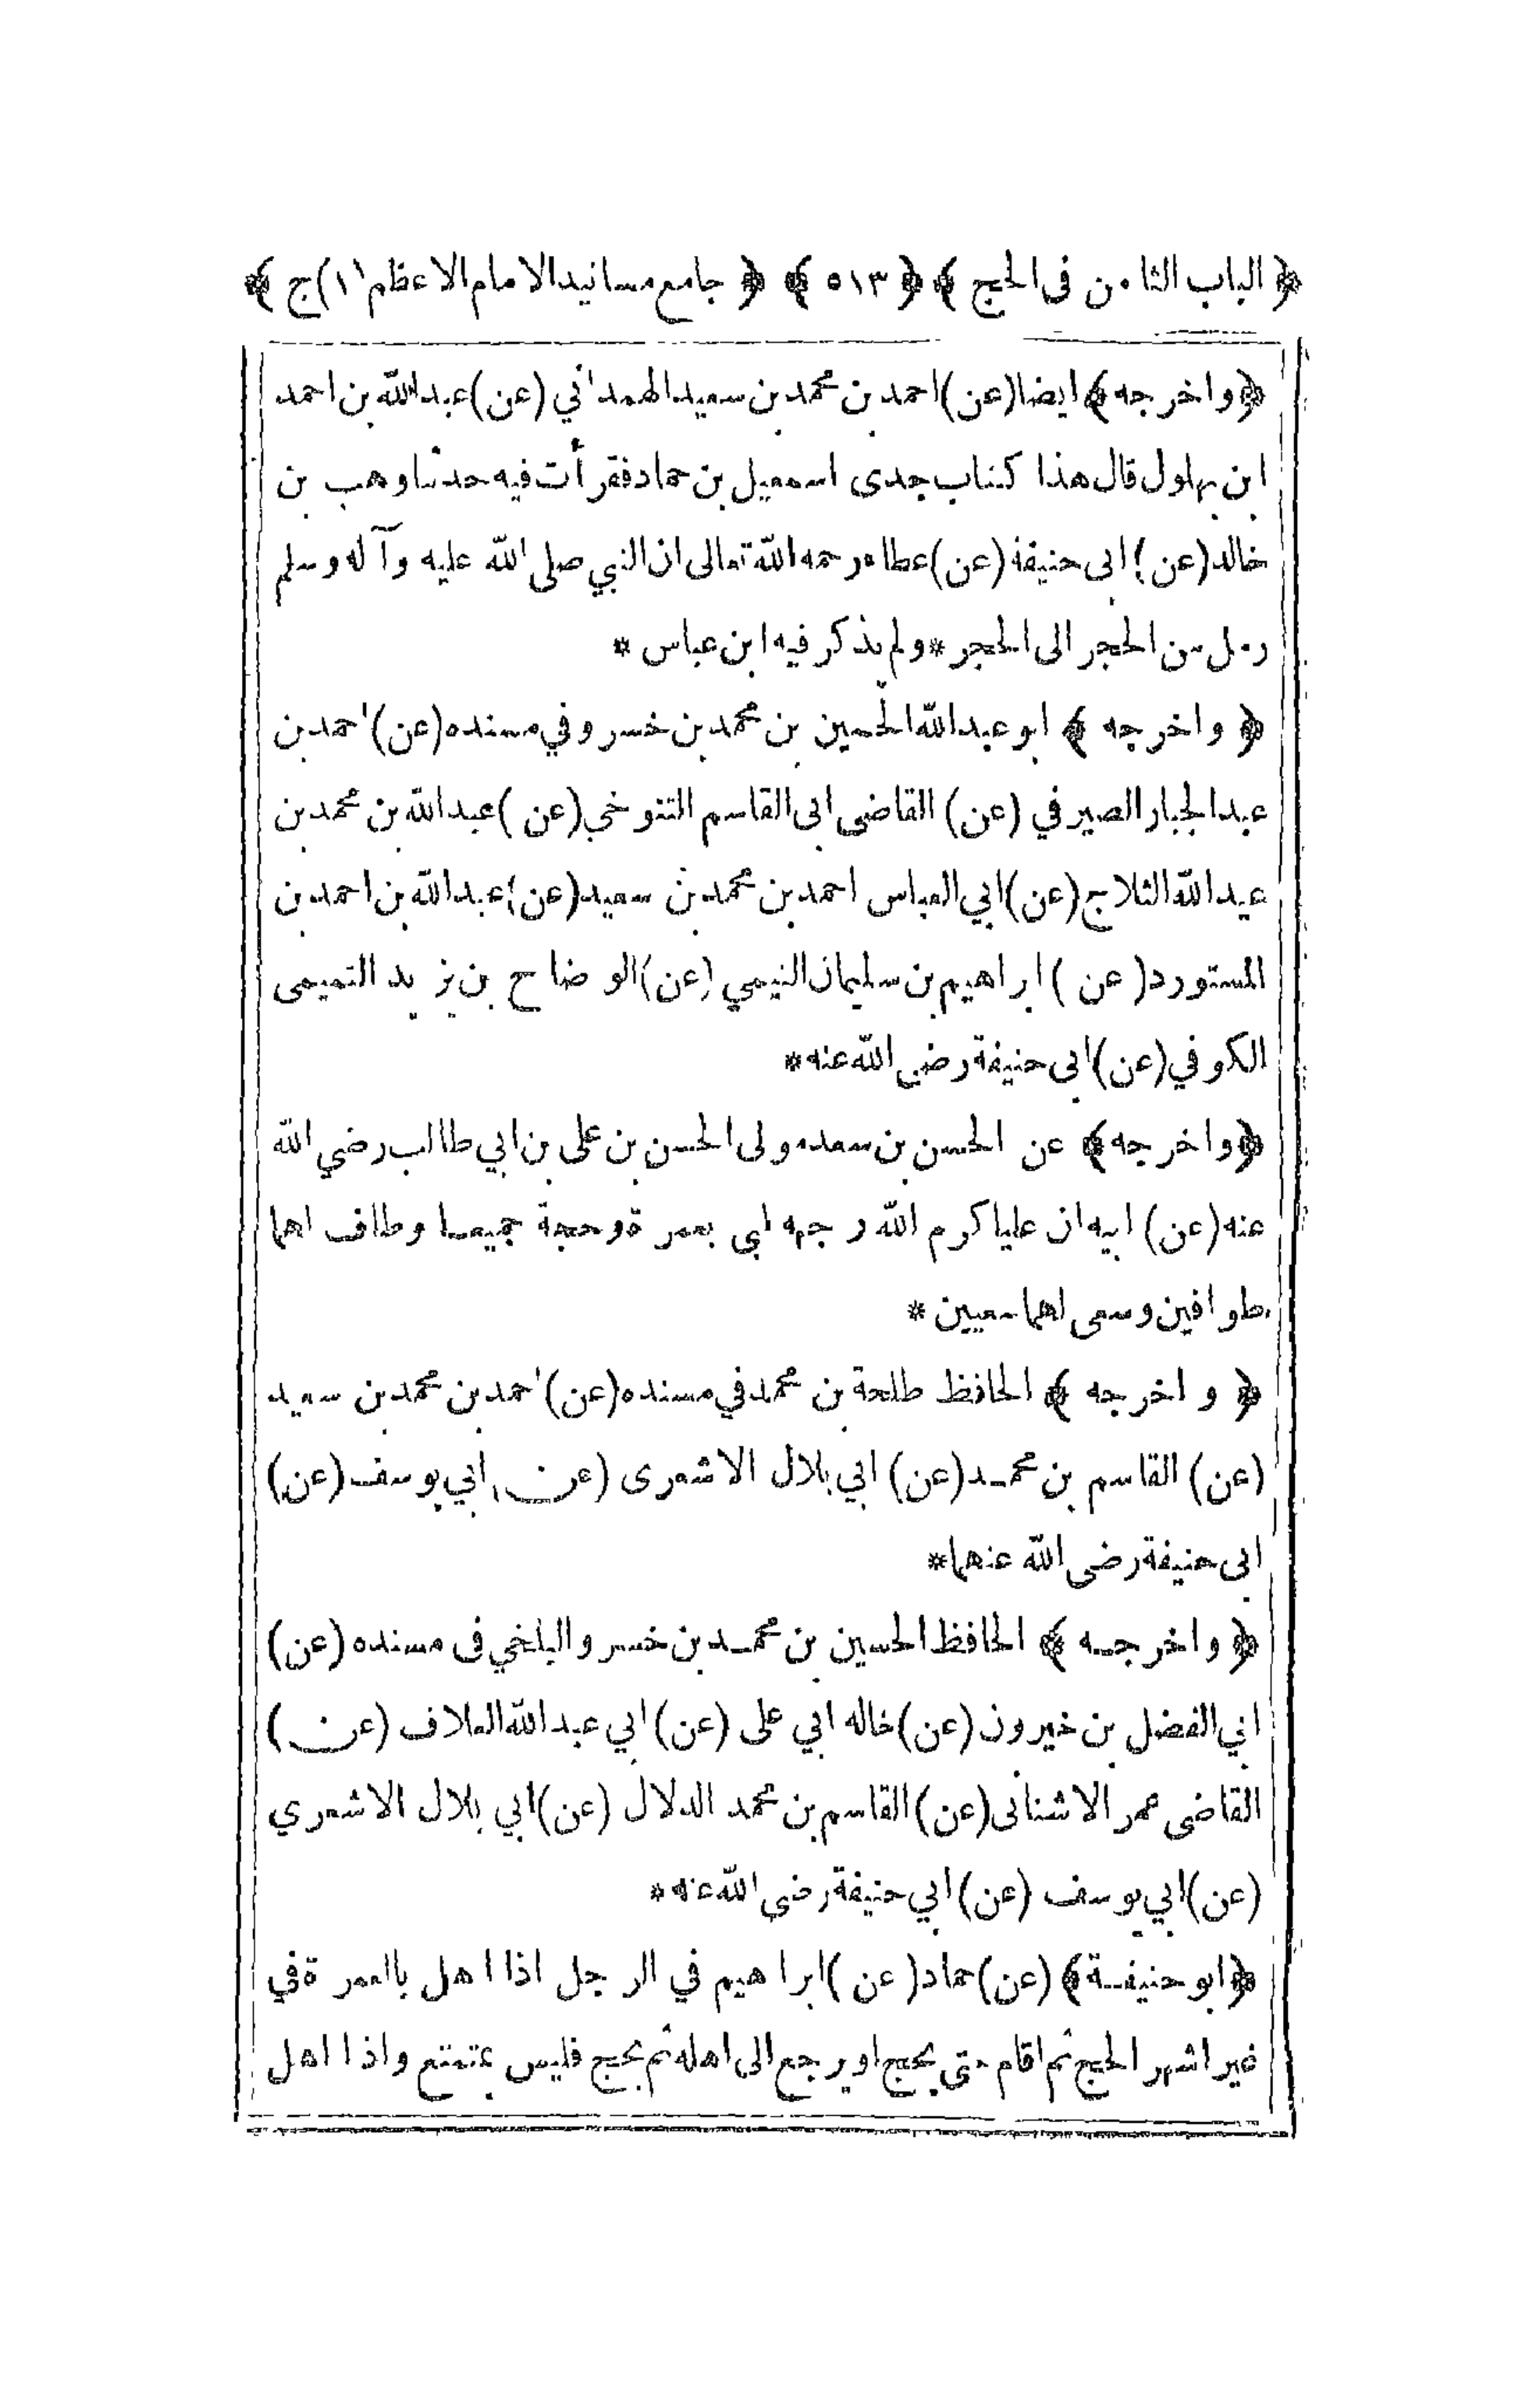 ﴿ الباب الثامن فى الحج ﴾ ﴿ ٥١٣ ﴾ ﴿ جامع مسانيد الامام الاعظم (١) ج ﴾
﴿ واخرجه ﴾ ايضا (عن) احمد بن محمد بن سعيد الهمدانى (عن) عبدالله بن احمد
ابن بهلول قال هذا كتاب جدى اسمعيل بن حماد فقرأت فيه حدثنا وهب بن
خالد (عن) ابى حنيفة (عن) عطاء رحمه الله تعالى ان النبي صلى الله عليه وآله وسلم
رمل من الحجر الى الحجر * ولم يذكر فيه ابن عباس *
﴿ واخرجه ﴾ ابو عبدالله الحسين بن محمد بن خسرو في مسنده (عن) احمد بن
عبدالجبار الصيرفي (عن) القاضى ابى القاسم التنوخي (عن) عبدالله بن محمد بن
عبدالله الثلاج (عن) ابي العباس احمد بن محمد بن سعيد (عن) عبدالله بن احمد بن
المستورد (عن) ابراهيم بن سليمان التيمي (عن) الوضاح بن يزيد التميمى
الكوفي (عن) ابى حنيفة رضي الله عنه *
﴿ واخرجه ﴾ عن الحسن بن سعد مولى الحسن بن على بن ابي طالب رضي الله
عنه (عن) ابيه ان عليا كرم الله وجهه لبى بعمرة وحجة جميعا وطاف لهما
طوافين وسعى لهما سعيين *
﴿ واخرجه ﴾ الحافظ طلحة بن محمد في مسنده (عن) احمد بن محمد بن سعيد
(عن) القاسم بن محمد (عن) ابي بلال الاشعرى (عن) ابي يوسف (عن)
ابى حنيفة رضى الله عنهما *
﴿ واخرجه ﴾ الحافظ الحسين بن محمد بن خسرو البلخي فى مسنده (عن)
ابي الفضل بن خيرون (عن) خاله ابي على (عن) ابي عبدالله العلاف (عن)
القاضى عمر الاشنانى (عن) القاسم بن محمد الدلال (عن) ابي بلال الاشعري
(عن) ابي يوسف (عن) ابي حنيفة رضي الله عنه *
﴿ ابو حنيفة ﴾ (عن) حماد (عن) ابراهيم في الرجل اذا اهل بالعمرة في
غير اشهر الحج ثم اقام حتى يحج او يرجع الى اهله ثم يحج فليس بمتمتع واذا اهل